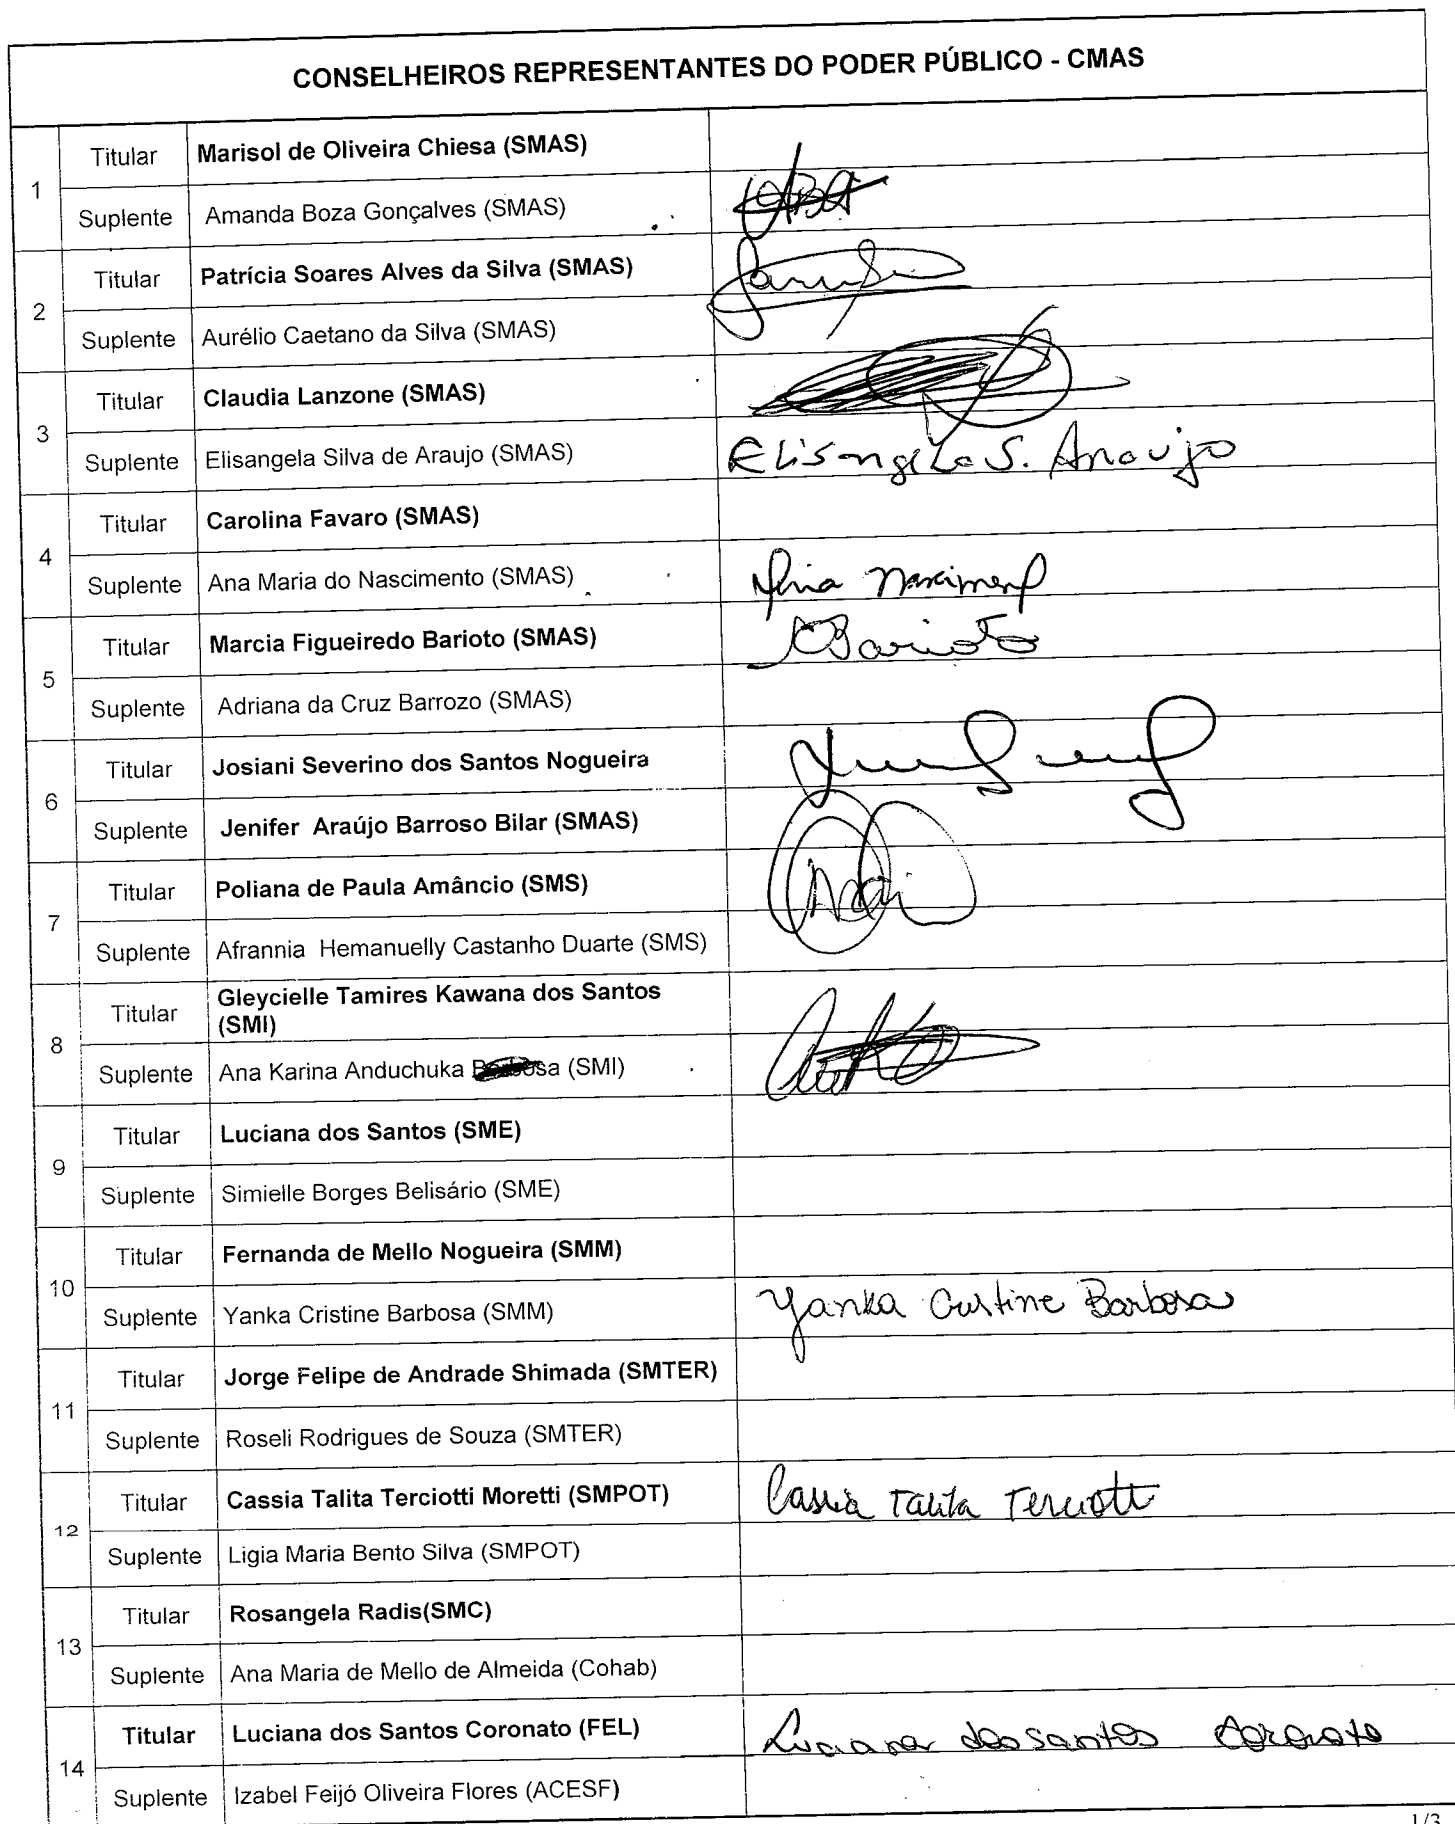 CONSELHEIROS REPRESENTANTES DO PODER PÚBLICO - CMAS
1
Titular Marisol de Oliveira Chiesa (SMAS)
Suplente Amanda Boza Gonçalves (SMAS)
2
Titular Patrícia Soares Alves da Silva (SMAS)
Suplente Aurélio Caetano da Silva (SMAS)
3
Titular Claudia Lanzone (SMAS)
Suplente Elisangela Silva de Araujo (SMAS) Elisangela S. Araujo
4
Titular Carolina Favaro (SMAS)
Suplente Ana Maria do Nascimento (SMAS)
5
Titular Marcia Figueiredo Barioto (SMAS) Barioto
Suplente Adriana da Cruz Barrozo (SMAS)
6
Titular Josiani Severino dos Santos Nogueira
Suplente Jenifer Araújo Barroso Bilar (SMAS)
7
Titular Poliana de Paula Amâncio (SMS)
Suplente Afrannia Hemanuelly Castanho Duarte (SMS)
8
Titular Gleycielle Tamires Kawana dos Santos
(SMI)
Suplente Ana Karina Anduchuka (SMI)
9
Titular Luciana dos Santos (SME)
Suplente Simielle Borges Belisário (SME)
10
Titular Fernanda de Mello Nogueira (SMM)
Suplente Yanka Cristine Barbosa (SMM) Yanka Cristine Barbosa
11
Titular Jorge Felipe de Andrade Shimada (SMTER)
Suplente Roseli Rodrigues de Souza (SMTER)
12
Titular Cassia Talita Terciotti Moretti (SMPOT) Cassia Talita Terciotti
Suplente Ligia Maria Bento Silva (SMPOT)
13
Titular Rosangela Radis(SMC)
Suplente Ana Maria de Mello de Almeida (Cohab)
14
Titular Luciana dos Santos Coronato (FEL) Luciana dos Santos Coronato
Suplente Izabel Feijó Oliveira Flores (ACESF)
1/3